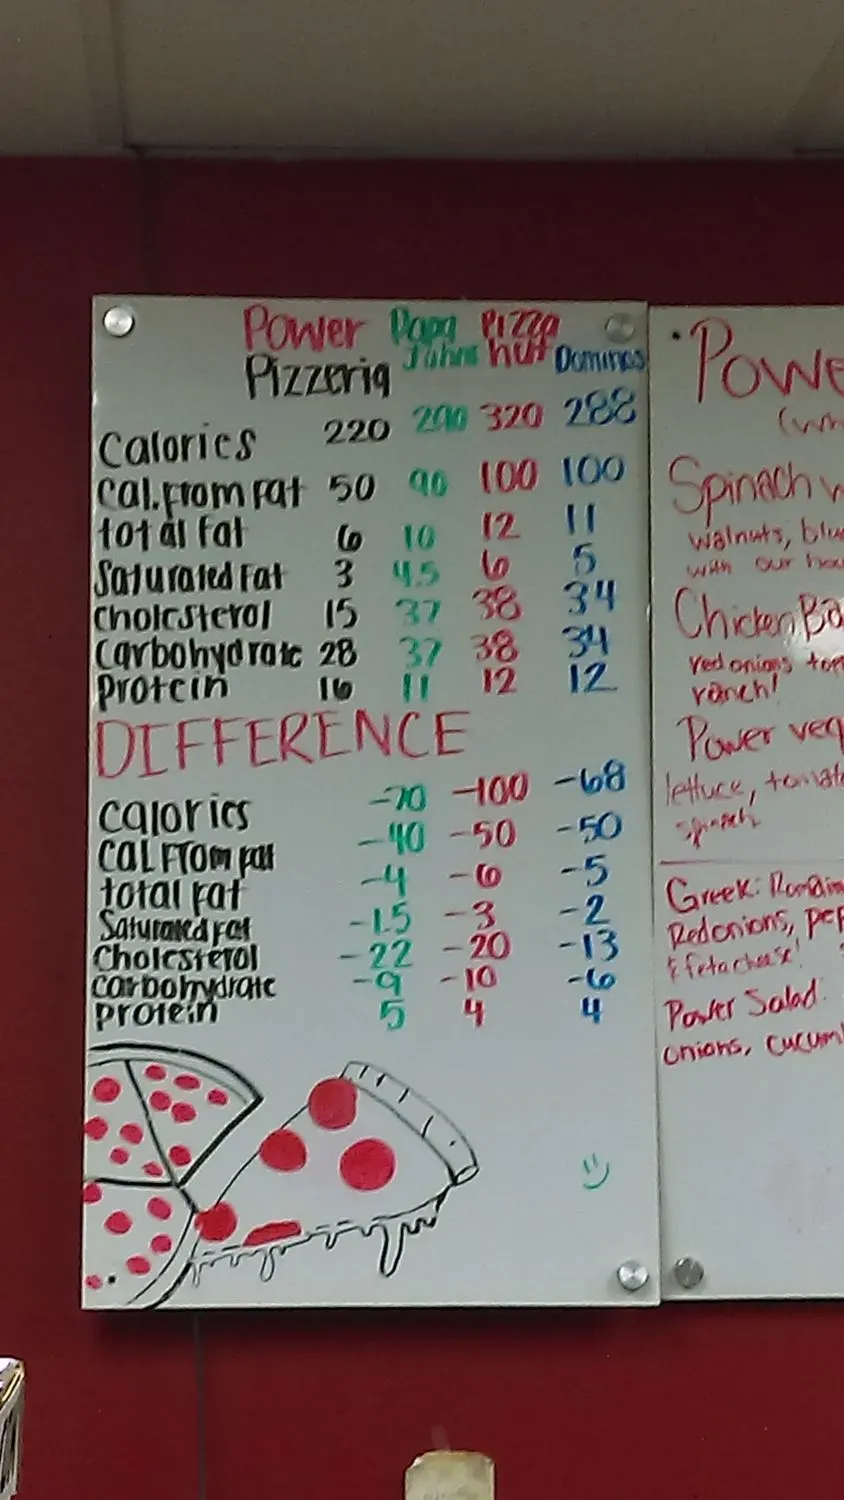 Power Papa Pizza
Pizzeria Johns hut Dominos
Calories 220 290 320 288
Cal. From Fat 50 90 100 100
total fat 6 10 12 11
Saturated Fat 3 4.5 6 5
Cholesterol 15 37 38 34
Carbohydrate 28 37 38 34
Protein 16 11 12 12
DIFFERENCE
Calories -70 -100 -68
Cal From Fat -40 -50 -50
total fat -4 -6 -5
Saturated Fat -1.5 -3 -2
Cholesterol -22 -20 -13
Carbohydrate -9 -10 -6
Protein 5 4 4
Powe
Spinach w
walnuts, blu
with our hou
Chicken Ba
red onions
ranch!
Power veg
lettuce, tomat
spinach
Greek: Romain
Red onions, pep
& feta cheese!
Power Salad:
onions, cucum